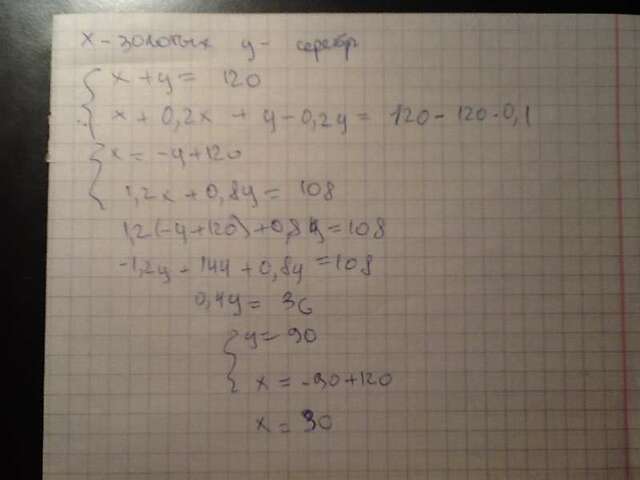 x - золотых y - серебр
x + y = 120
x + 0,2x + y - 0,2y = 120 - 120 · 0,1
x = -y + 120
1,2x + 0,8y = 108
1,2(-y+120) + 0,8y = 108
-1,2y + 144 + 0,8y = 108
0,4y = 36
y = 90
x = -90 + 120
x = 30